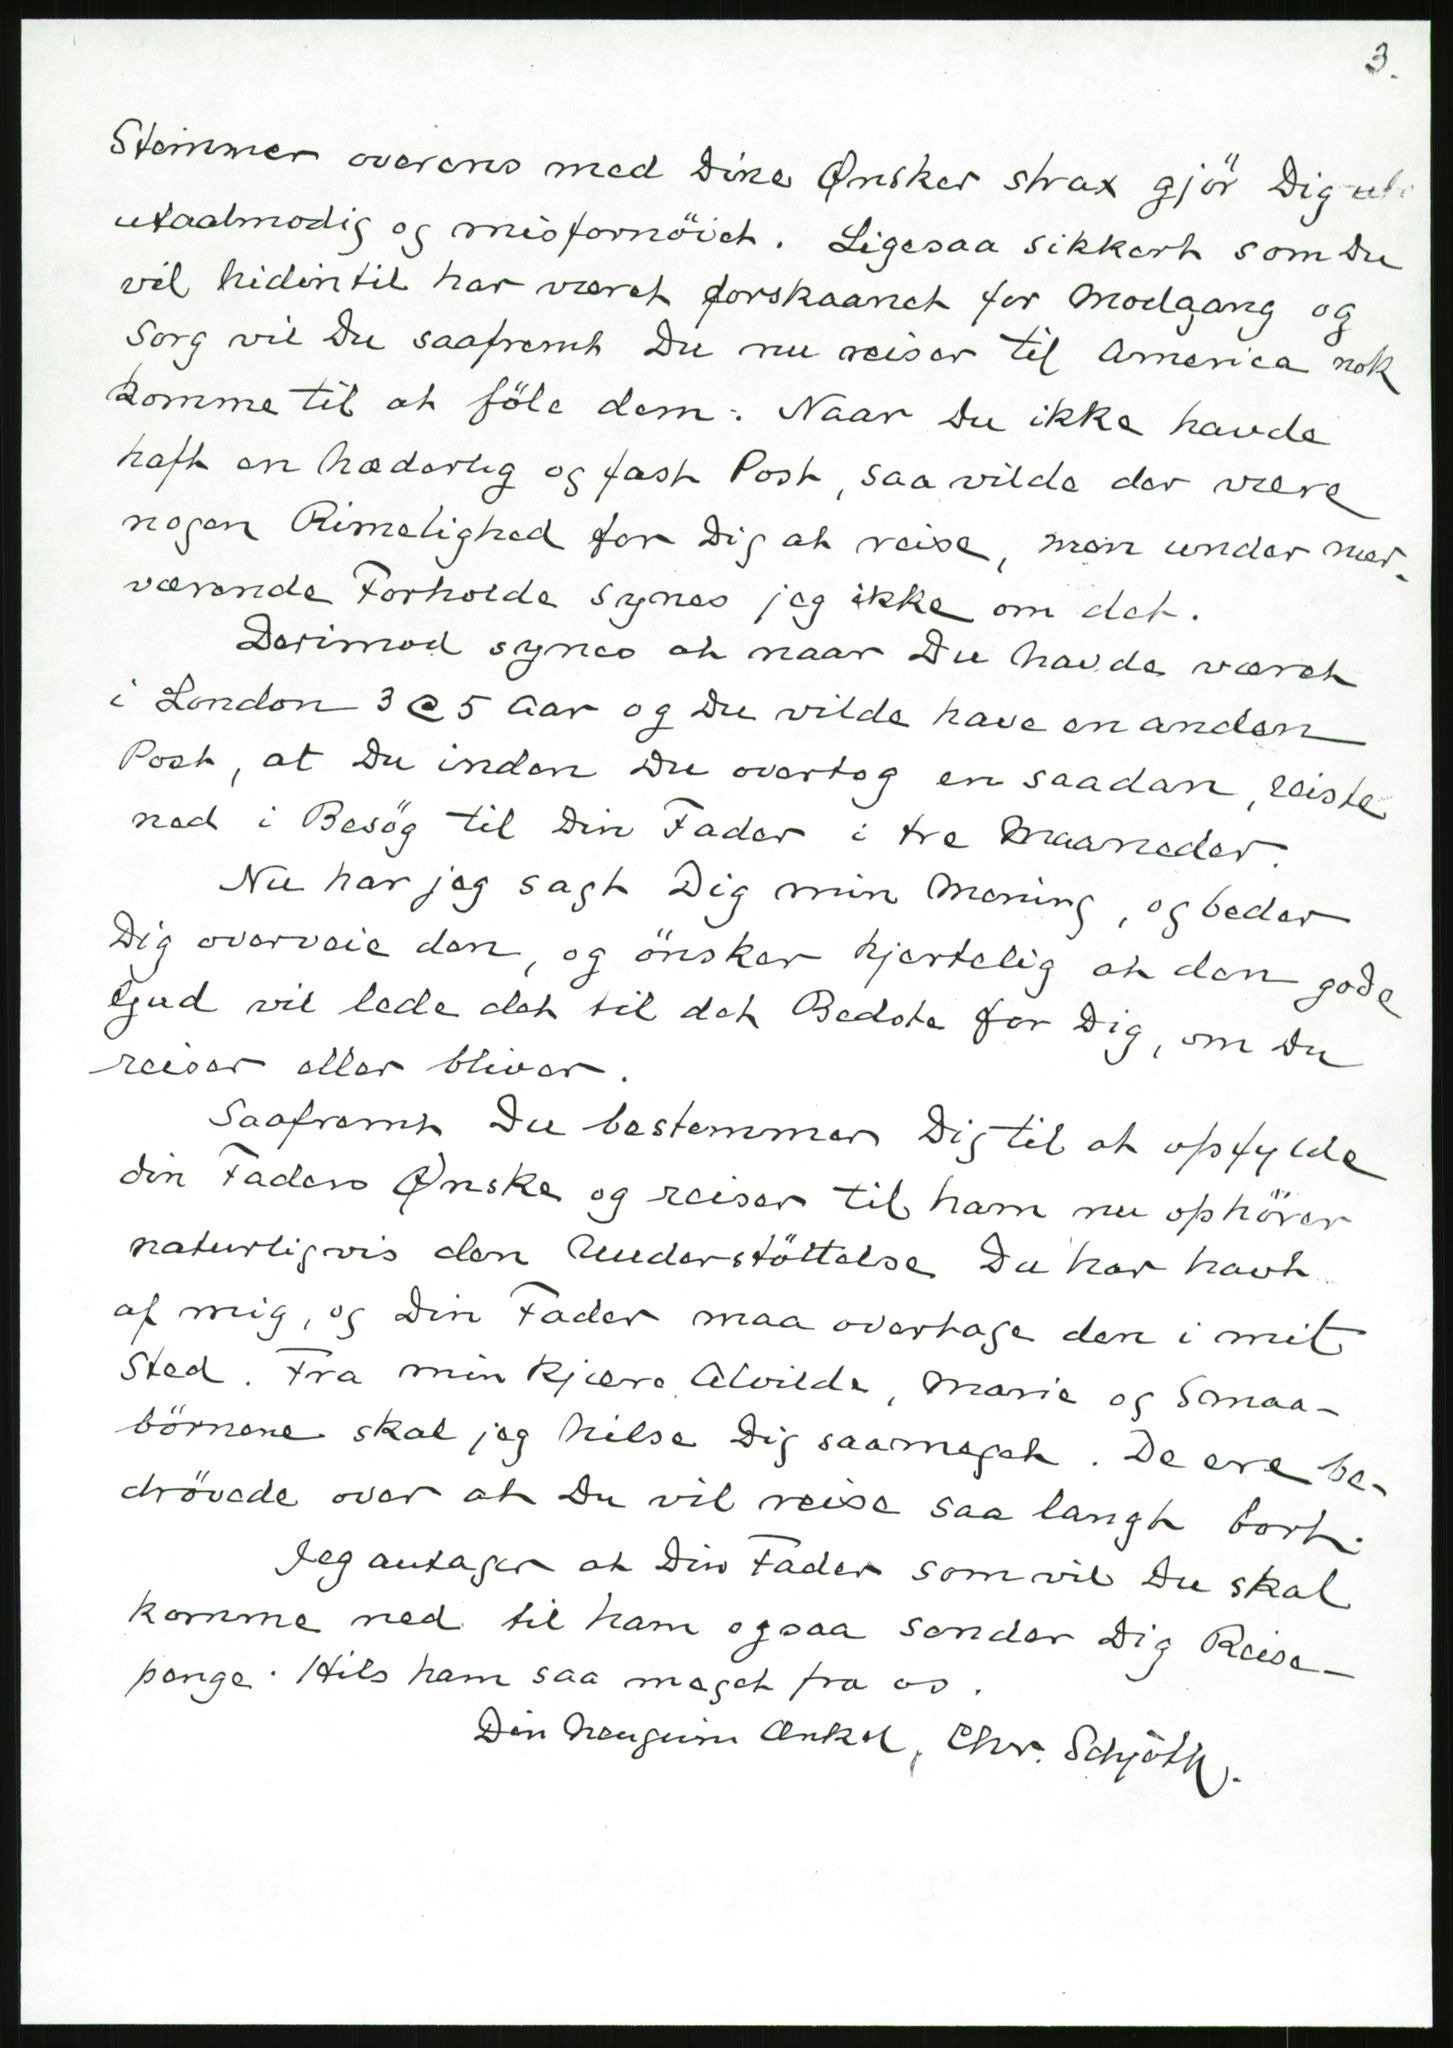 3.
Stemmer overens med Dine Ønsker strax gjör Dig
utaalmodig og misfornöiet. Ligesaa sikkert som Du
vil hidintil har været forskaanet for Modgang og
Sorg vil Du saafremt Du nu reiser til America nok
komme til at föle dem. Naar Du ikke havde
haft en hæderlig og fast Post, saa vilde der være
nogen Rimelighed for Dig at reise, men under nær-
værende Forholde synes jeg ikke om det.
Derimod synes at naar Du havde været
i London 3 @ 5 Aar og Du vilde have en anden
Post, at Du inden Du overtog en saadan, reiste
ned i Besög til Din Fader i tre Maaneder.
Nu har jeg sagt Dig min Mening, og beder
Dig overveie den, og önsker hjertelig at den gode
Gud vil lede det til det Bedste for Dig, om Du
reiser eller bliver.
Saafremt Du bestemmer Dig til at opfylde
din Faders Ønske og reiser til ham nu ophörer
naturligvis den Understöttelse Du har havt
af mig, og Din Fader maa overtage den i mit
Sted. Fra min kjære Alvilde, Marie og Smaa-
börnene skal jeg hilse Dig saameget. De ere be-
drövede over at Du vil reise saa langt bort.
Jeg antager at Din Fader som vil Du skal
komme ned til ham ogsaa sender Dig Reise-
penge. Hils ham saa meget fra os.
Din hengivne Onkel, Chr. Schjöth.